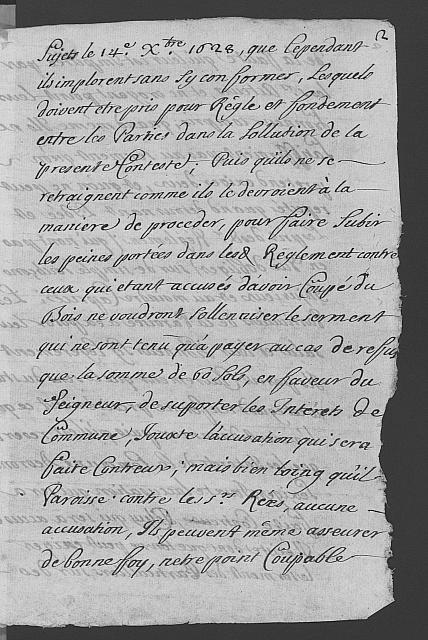 2
Sujets le 14.e Xbre 1628, que Cependant
ils implorent sans sy conformer, Lesquels
doivent etre pris pour Régle et fondement
entre les Parties dans la Sollution de la
presente Conteste; Puis qu'ils ne se
retraignent comme ils le devroient à la
maniere de proceder, pour faire Subir
les peines portées dans led. Reglement contre
ceux qui etant accusés d'avoir Coupé du
Bois ne voudront Sollenniser le serment
qui ne sont tenu qu'a payer au cas de refus
que la somme de 60 Sols, en faveur du
Seigneur, de suporter les Interets de
Commune, Jouxte l'accusation qui sera
faite Contreux; mais bien loing qu'il
Paroisse contre les s.rs Rées, aucune
accusation, Ils peuvent même asseurer
de bonne foy, n'etre point Coupable